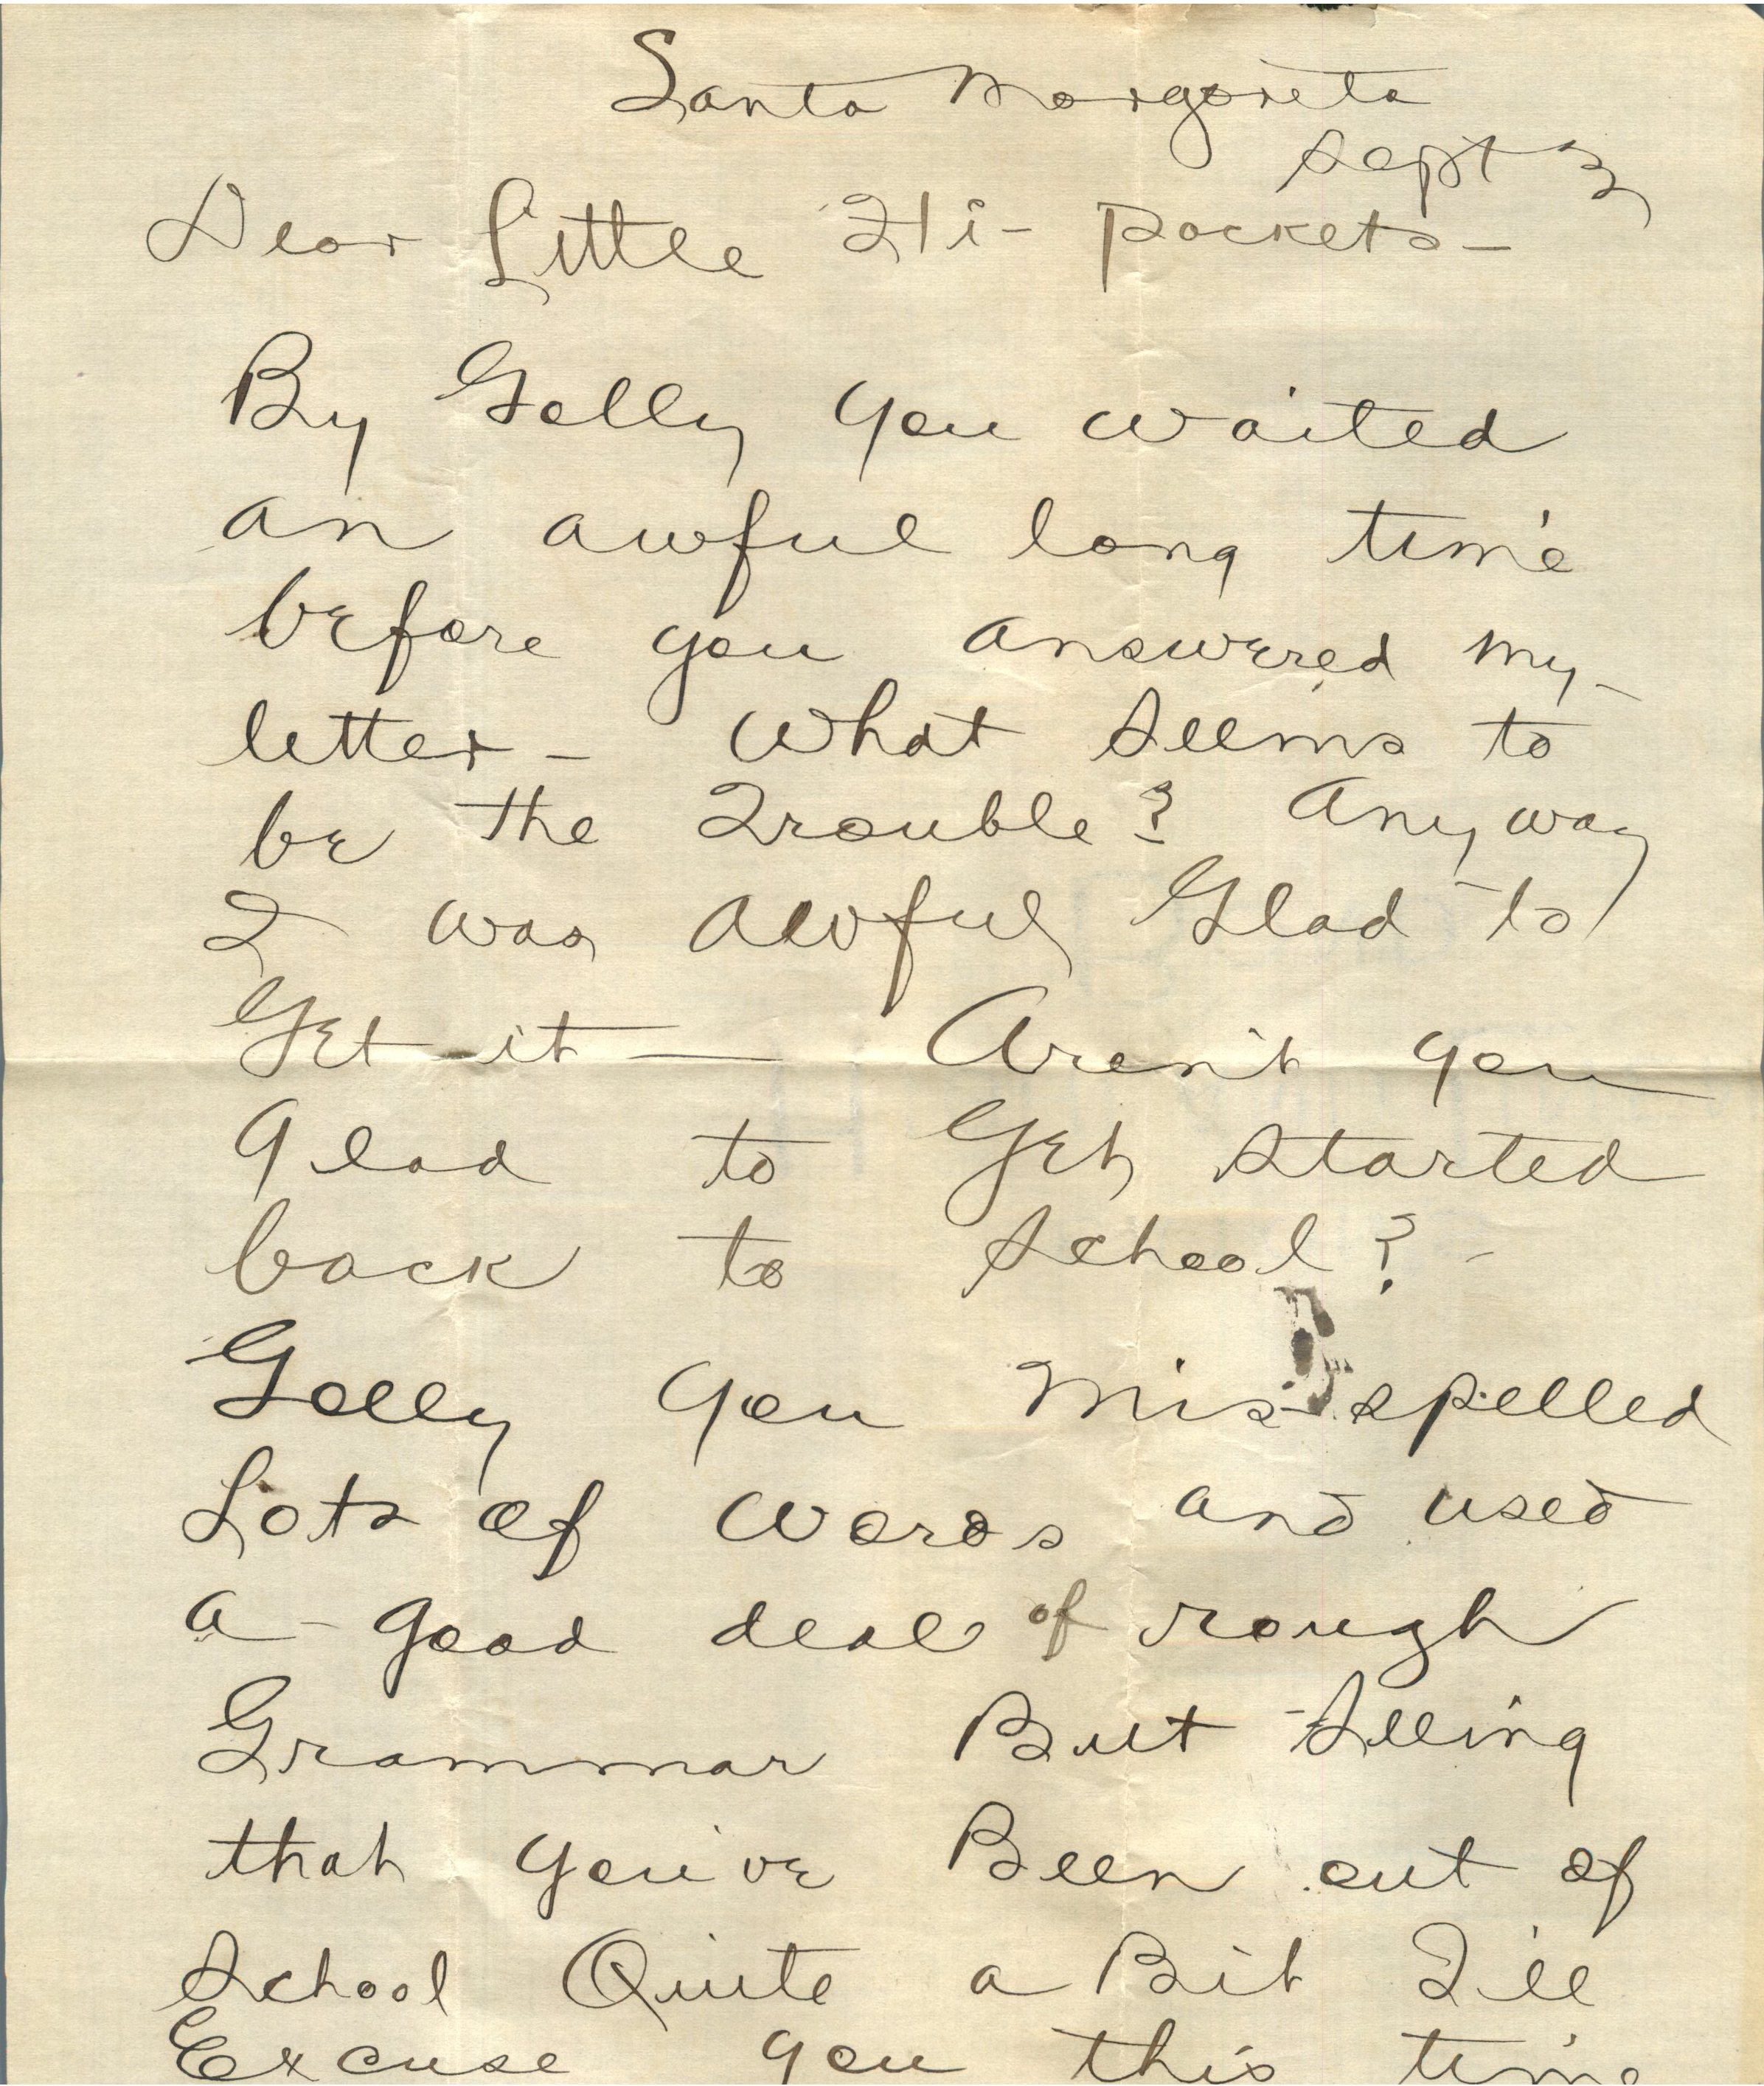 Santa Margareta
Sept 3
Dear Little Hi- Pockets-
By Golly you waited
an awful long time
before you answered my
letter - What seems to
be the Trouble? Anyway
I was awful Glad to
Get it — Aren't you
glad to Get started
back to school? -
Golly you mis-spelled
Lots of words and used
a good deal of rough
Grammar But seeing
that you've Been out of
School Quite a Bit I'll
Excuse you this time